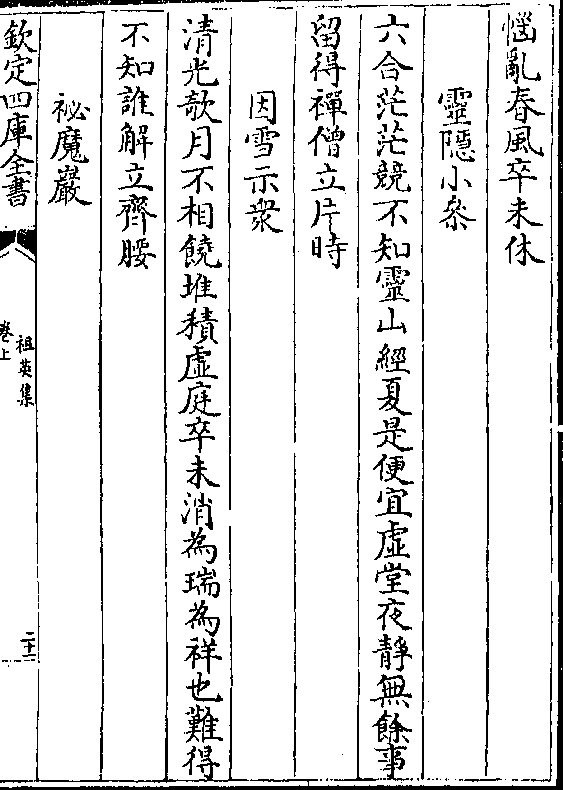 惱亂春風卒未休
靈隠小叅
六合茫茫競不知靈山經夏是便宜虛堂夜靜無餘事
留得禪僧立片時
因雪示衆
清光欹月不相饒堆積虛庭卒未消為瑞為祥也難得
不知誰解立齊腰
祕魔巖
欽定四庫全書
祖英集
卷上
二十二